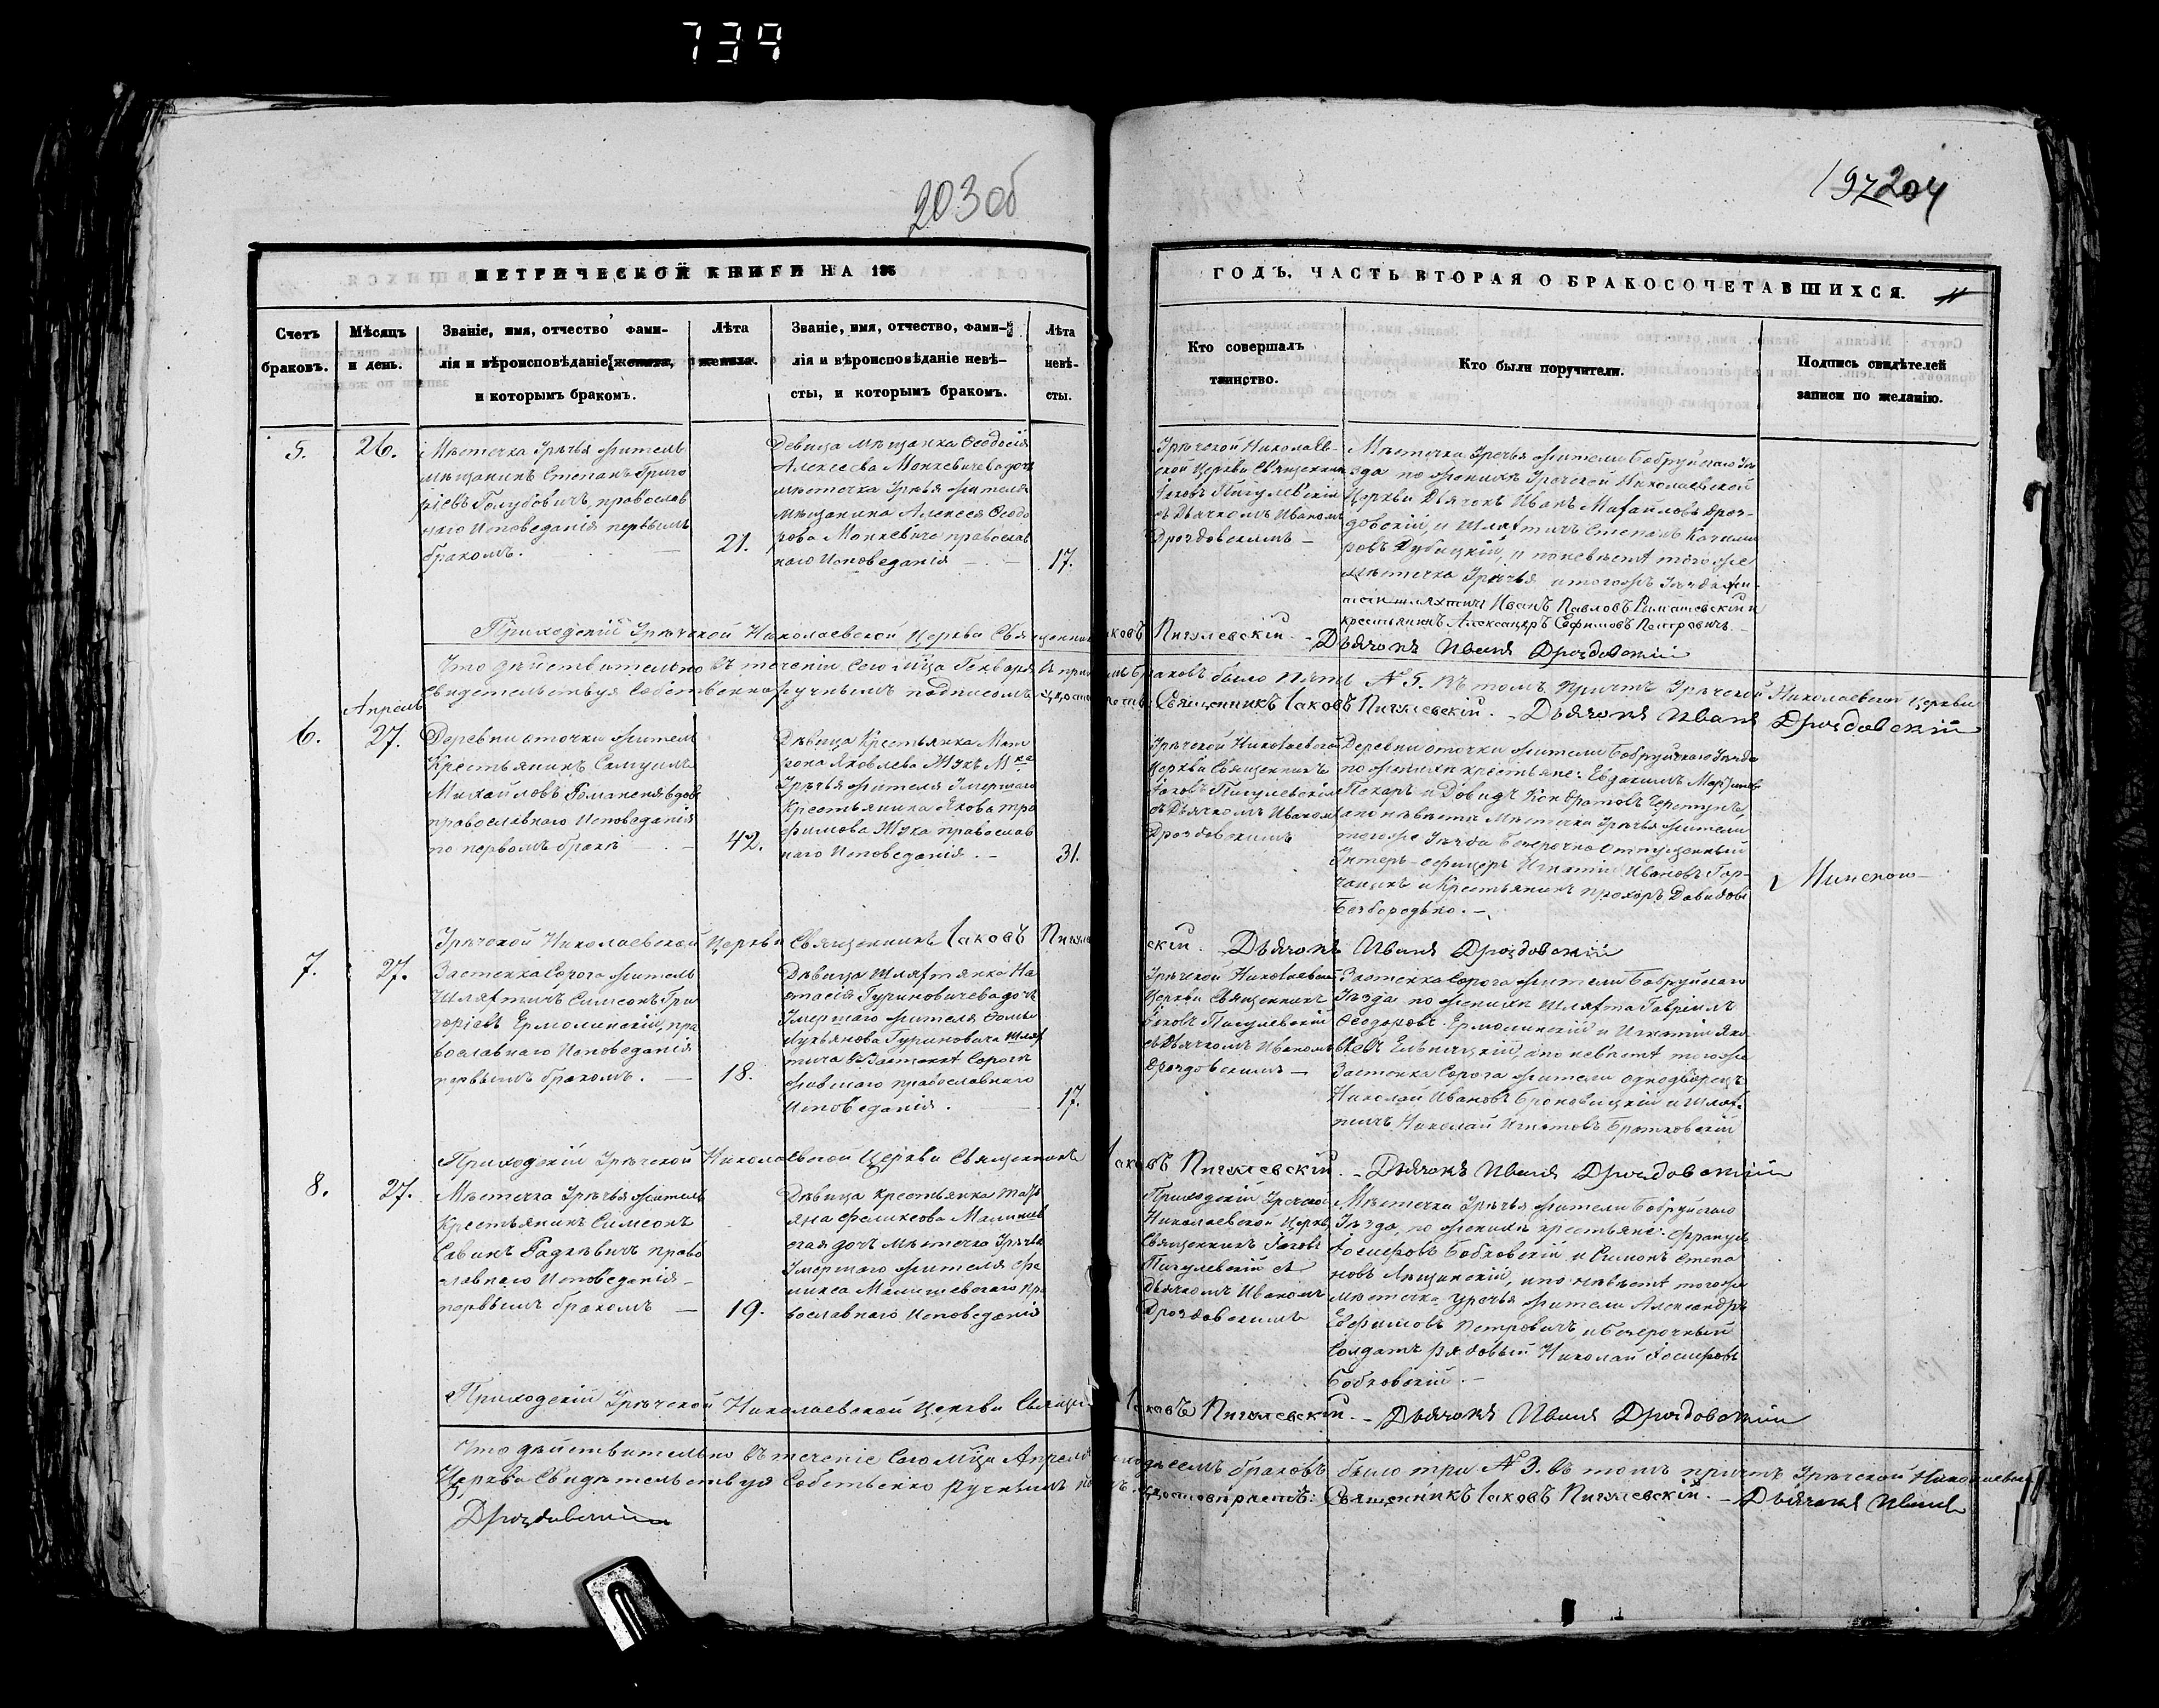 739
203 об
197 204
МЕТРИЧЕСКОЙ КНИГИ НА 185
ГОДЪ, ЧАСТЬ ВТОРАЯ О БРАКОСОЧЕТАВШИХСЯ.
Счетъ
браковъ.
Мѣсяцъ
и день.
Званіе, имя, отчество фами-
лія и вѣроисповѣданіе жениха,
и которымъ бракомъ.
Лѣта
жениха.
Званіе, имя, отчество, фами-
лія и вѣроисповѣданіе невѣ-
сты, и которымъ бракомъ.
Лѣта
невѣ-
сты.
Кто совершалъ
таинство.
Кто были поручители.
Подпись свидѣтелей
записи по желанію.
5.
26.
Мѣстечка Урѣчья житель
мѣщанинъ Степанъ Григо
ріевъ Голубовичъ, православ
наго Исповеданія первымъ
бракомъ.
21.
Девица мѣщанка Ѳеодосія
Алексеева Монкевичева дочь
мѣстечка Урѣчья жителя
Мѣщанина Алексея Ѳеодо
рова Монкевича православ
наго Исповеданія
17.
Урѣчской Николаев-
ской Церкви Священникъ
Іаковъ Пигулевскій
съ Дьячкомъ Иваномъ
Дроздовскимъ
Мѣстечка Уречья жители Бобруйскаго Уѣ
зда по женихѣ Уречской Николаевской
Церкви Дьячокъ Иванъ Михайловъ Дроз-
довскій, и Шляхтичъ Степанъ
ровъ Дубицкій, и по невѣсте тогоже
мѣстечка Урѣчья и тогожъ Уѣзда жи-
тели шляхтичъ Иванъ Павловъ Ромашевскій и
крестьянинъ Александръ Ефимовъ Петровичъ.
Приходскій Урѣчской Николаевской Церкви Священникъ Іаковъ Пигулевскій. Дьячокъ Иванъ Дроздовскій
Что действительно въ теченіи сего мѣца Генваря браковъ было пять № 5. въ томъ причтъ Урѣчской Николаевской церкви
свидетельствуя собственноручнымъ подписомъ Священникъ Іаковъ Пигулевскій. Дьячокъ Иванъ Дроздовскій
Апрель
6.
27.
Деревни житель
Крестьянинъ Самуилъ
Михайловъ Романеня вдов
православнаго Исповеданія
по первомъ браке
42.
Дѣвица Крестьянка Мат
рона Яковлева Жукъ Мка
Урѣчья жителя Умершаго
Крестьянина Якова Тро
фимова Жука православ
наго Исповеданія.
31.
Урѣчской Николаевской
Церкви Священникъ
Іаковъ Пигулевскій
съ Дьячкомъ Иваномъ
Дроздовскимъ
Деревни жители Бобруйскаго Уѣзда
по женихѣ крестьяне: Евдокимъ
Пекаръ и Довидъ Кондратовъ
а по невѣсте Мѣстечка Урѣчья жители
тогоже Уѣзда безсрочно отпущенный
Унтеръ-офицеръ Игнатій Ивановъ Гор-
и Крестьянинъ Прохоръ Давидовъ
Безбородько.
Урѣчской Николаевской Церкви Священникъ Іаковъ Пигулевскій. Дьячокъ Иванъ Дроздовскій
7.
27.
Застенка Сорога житель
Шляхтичъ Симеонъ Гри
горіевъ Ермолинскій, пра
вославнаго Исповеданія
первымъ бракомъ.
18.
Дѣвица Шляхтянка На
стасія Гуриновичева дочь
Умершаго жителя Фомы
Лукьянова Гуриновича Шлях
тича въ Застенке Сороги
жившаго православнаго
Исповеданія.
17.
Урѣчской Николаевской
Церкви Священникъ
Іаковъ Пигулевскій
съ Дьячкомъ Иваномъ
Дроздовскимъ
Застенка Сорога жители Бобруйскаго
Уѣзда по женихѣ Шляхта Гавріилъ
Ѳеодоровъ Ермолинскій и Игнатій Яко
влевъ а по невѣсте тогоже
Застенка Сорога жители однодворецъ
Николай Ивановъ Броновицкій и Шлях-
тичъ Николай Игнатовъ Братковскій
Приходскій Урѣчской Николаевской Церкви Священникъ Іаковъ Пигулевскій. Дьячокъ Иванъ Дроздовскій
8.
27.
Мѣстечка Урѣчья житель
Крестьянинъ Симеонъ
Савинъ Радкевичъ право
славнаго Исповеданія
первымъ бракомъ
19.
Дѣвица крестьянка Тать
яна Феликсова Малишев
ская дочь мѣстечка Урѣчья
Умершаго жителя Фе
ликса Малишевскаго пра
вославнаго Исповеданія
Приходскій Уречской
Николаевской Церкви
Священникъ Іаковъ
Пигулевскій съ
дьячкомъ Иваномъ
Дроздовскимъ
Мѣстечка Урѣчья жители Бобруйскаго
Уѣзда, по женихѣ крестьяне: Францъ
Іосифовъ Бобковскій и Симонъ Степа
новъ Лещинскій, и по невѣсте тогоже
мѣстечка Уречья жители Александръ
Евфимовъ Петровичъ и безсрочный
Солдатъ рядовый Николай Іосифовъ
Бобковскій.
Приходскій Урѣчской Николаевской Церкви Священникъ Іаковъ Пигулевскій. Дьячокъ Иванъ Дроздовскій
Что действительно въ теченіе сего мѣца Апреля браковъ было три № 3. въ томъ причтъ Урѣчской Николаевской
Церкви Свидѣтельствуя Собственно ручнымъ Священникъ Іаковъ Пигулевскій. Дьячокъ Иванъ
Дроздовскій